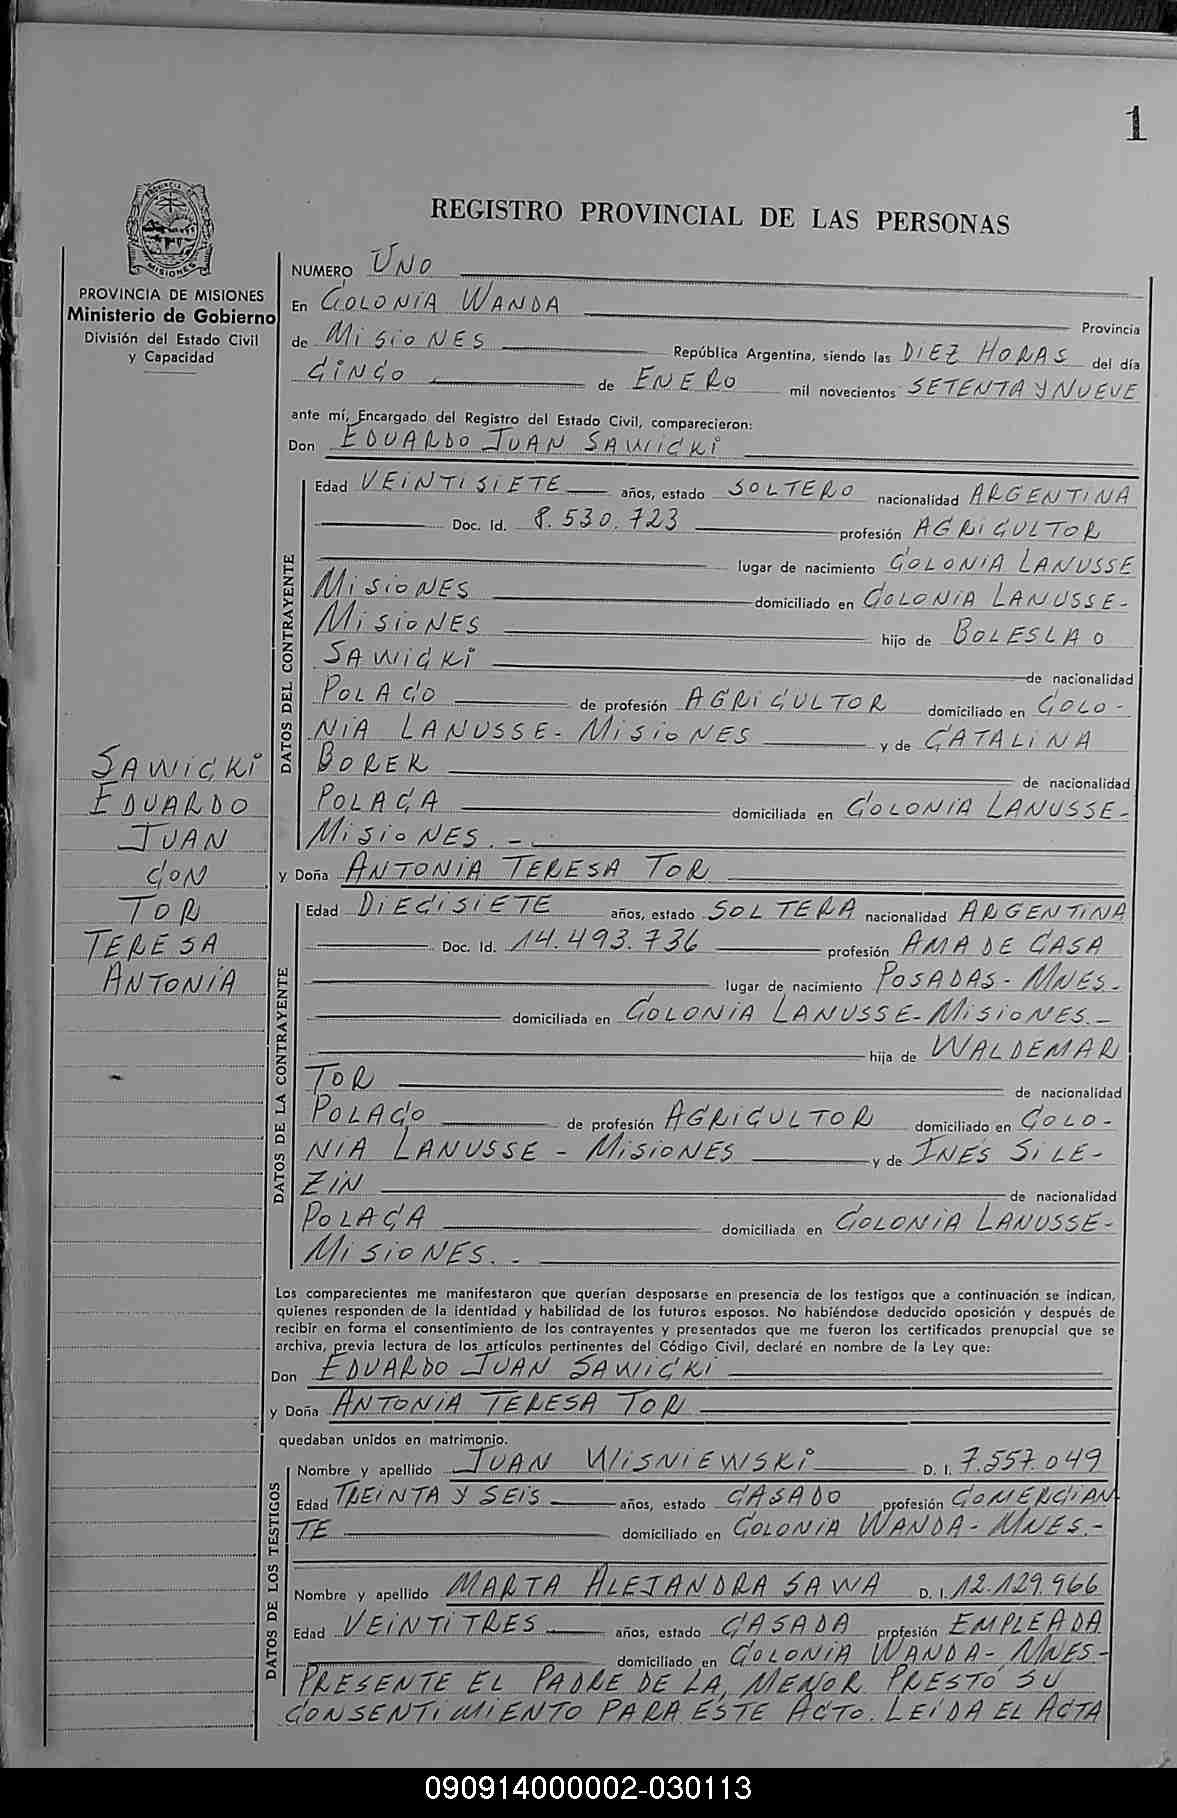 1
PROVINCIA DE MISIONES
REGISTRO PROVINCIAL DE LAS PERSONAS
PROVINCIA DE MISIONES
Ministerio de Gobierno
División del Estado Civil
y Capacidad
SAWICKI
EDUARDO
JUAN
CON
TOR
TERESA
ANTONIA
NUMERO UNO
En COLONIA WANDA
Provincia
de MISIONES República Argentina, siendo las DIEZ HORAS del día
CINCO de ENERO mil novecientos SETENTA Y NUEVE
ante mí, Encargado del Registro del Estado Civil, comparecieron:
Don EDUARDO JUAN SAWICKI
DATOS DEL CONTRAYENTE
Edad VEINTISIETE años, estado SOLTERO nacionalidad ARGENTINA
Doc. Id. 8.530.723 profesión AGRICULTOR
lugar de nacimiento COLONIA LANUSSE
MISIONES domiciliado en COLONIA LANUSSE-
MISIONES hijo de BOLESLAO
SAWICKI de nacionalidad
POLACO de profesión AGRICULTOR domiciliado en COLO-
NIA LANUSSE- MISIONES y de CATALINA
BOREK de nacionalidad
POLACA domiciliada en COLONIA LANUSSE-
MISIONES.-
y Doña ANTONIA TERESA TOR
DATOS DE LA CONTRAYENTE
Edad DIECISIETE años, estado SOLTERA nacionalidad ARGENTINA
Doc. Id. 14.493.736 profesión AMA DE CASA
lugar de nacimiento POSADAS- MNES-
domiciliada en COLONIA LANUSSE- MISIONES.-
hija de WALDEMAR
TOR de nacionalidad
POLACO de profesión AGRICULTOR domiciliado en COLO-
NIA LANUSSE - MISIONES y de INÉS SILE-
ZIN de nacionalidad
POLACA domiciliada en COLONIA LANUSSE-
MISIONES.-
Los comparecientes me manifestaron que querían desposarse en presencia de los testigos que a continuación se indican,
quienes responden de la identidad y habilidad de los futuros esposos. No habiéndose deducido oposición y después de
recibir en forma el consentimiento de los contrayentes y presentados que me fueron los certificados prenupcial que se
archiva, previa lectura de los artículos pertinentes del Código Civil, declaré en nombre de la Ley que:
Don EDUARDO JUAN SAWICKI
y Doña ANTONIA TERESA TOR
quedaban unidos en matrimonio.
DATOS DE LOS TESTIGOS
Nombre y apellido JUAN WISNIEWSKI D. I. 7.557.049
Edad TREINTA Y SEIS años, estado CASADO profesión COMERCIAN
TE domiciliado en COLONIA WANDA- MNES.-
Nombre y apellido MARTA ALEJANDRA SAWA D. I. 12.129.966
Edad VEINTITRES años, estado CASADA profesión EMPLEADA
domiciliado en COLONIA WANDA- MNES-
PRESENTE EL PADRE DE LA MENOR PRESTÓ SU
CONSENTIMIENTO PARA ESTE ACTO. LEÍDA EL ACTA
090914000002-030113